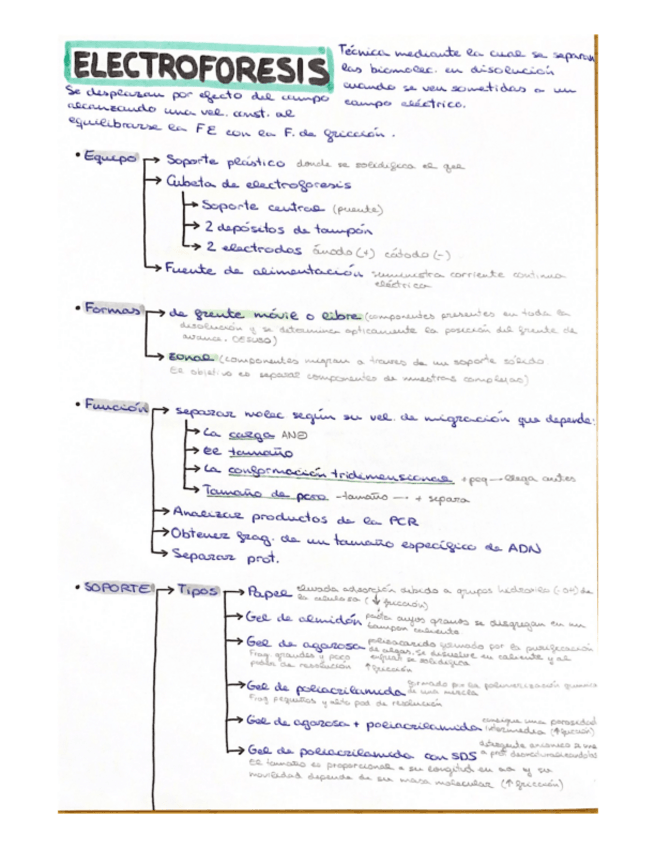 ELECTROFORESIS
Técnica mediante la cual se separan
las biomolec. en disolución
cuando se ven sometidas a un
campo eléctrico.
Se desplazan por efecto del campo
alcanzando una vel. const. al
equilibrarse la FE con la F. de fricción.
• Equipo → Soporte plástico donde se solidifica el gel
→ Cubeta de electroforesis
→ Soporte central (puente)
→ 2 depósitos de tampón
→ 2 electrodos ánodo (+) cátodo (-)
→ Fuente de alimentación suministra corriente continua
eléctrica
• Formas → de frente móvil o libre (componentes presentes en toda la
disolución y se determina opticamente la posición del frente de
avance. DESUSO)
→ zonal (componentes migran a traves de un soporte sólido.
El objetivo es separar componentes de muestras complejas)
• Función → separar molec según su vel. de migración que depende:
→ La carga
→ El tamaño
→ La conformación tridimensional + peq → llega antes
→ Tamaño de poro - tamaño → + separa
→ Analizar productos de la PCR
→ Obtener frag. de un tamaño específico de ADN
→ Separar prot.
• SOPORTE → Tipos → Papel elevada adsorción debido a grupos hidroxilo (-OH) de
la celulosa (↓ fricción)
→ Gel de almidón pasta cuyos granos se disgregan en un
tampon caliente
→ Gel de agarosa polisacarido formado por la purificación
de algas. Se disuelve en caliente y al
enfriar se solidifica
Frag. grandes y poco
poder de resolución ↑ fricción
→ Gel de poliacrilamida formado por la polimerización química
de una mezcla
Frag pequeños y alto pod. de resolución
→ Gel de agarosa + poliacrilamida consigue una porosidad
intermedia (↑ fricción)
→ Gel de poliacrilamida con SDS detergente anionico se une
a prot desnaturalizandolas
El tamaño es proporcional a su longitud en aa y su
movilidad depende de su masa molecular (↑ fricción)